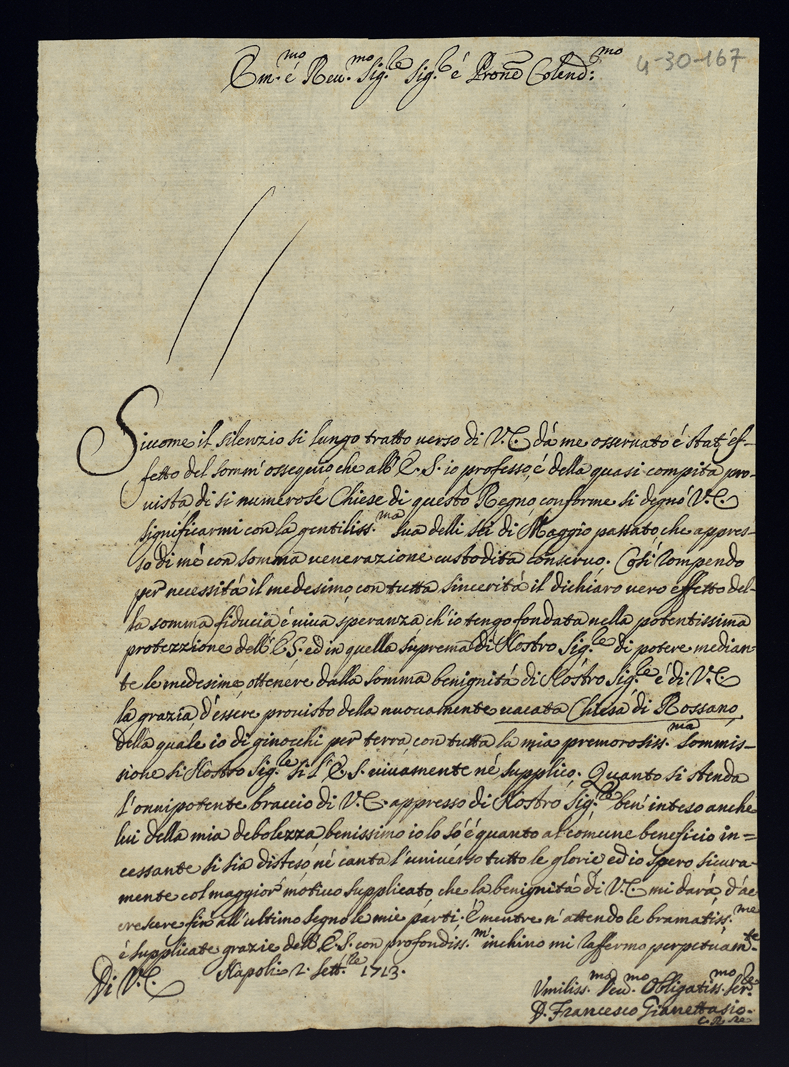 Em.mo é Reu.mo Sig.le Sig.le é Prone Colend:mo
4-30-167
Siccome il silenzio si lungo tratto verso di V.E. dá me osseruato é stat' ef-
fetto del somm' ossequio che all' E.S. io professo, é della quasi compita pro-
uista di si numerose Chiese di questo Regno, conforme si degnó V.E.
significarmi con la gentiliss.ma sua delli sei di Maggio passato che appres-
so di mé con somma venerazione custodita conseruo. Cosi rompendo
per necessitá il medesimo, con tutta sinceritá il dichiaro vero effetto del-
la somma fiducia é viva speranza ch'io tengo fondata nella potentissima
protezzione dell' E.S. ed in quella suprema di Nostro Sig.le di potere median-
te le medesime, ottenere dalla somma benignitá di Nostro Sig.le é di V.E.
la grazia d'essere prouisto della nuouamente uacata Chiesa di Rossano,
della quale io di ginocchi per terra con tutta la mia premorosiss.ma sommis-
sione si Nostro Sig.le si l'E.S. uiuamente né supplico. Quanto si stenda
l'onnipotente braccio di V.E. appresso di Nostro Sig.le ben' inteso anche
lui della mia debolezza, benissimo io lo só é quanto al comune beneficio in=
cessante si sia disteso né canta l'universo tutto le glorie, ed io spero sicura-
mente col maggior' motiuo supplicato che la benignitá di V.E. mi dará d'ac
crescere fin all'ultimo segno le mie parti. E mentre n'attendo le bramatiss.me
é supplicate grazie dell' E.S. con profondiss.m inchino mi raffermo perpetuam.te
Di V.E. Napoli 2. Sett.bre 1713.
Vmiliss.mo Deu.mo Obligatiss.mo Ser.le
D. Francesco Gianettasio.